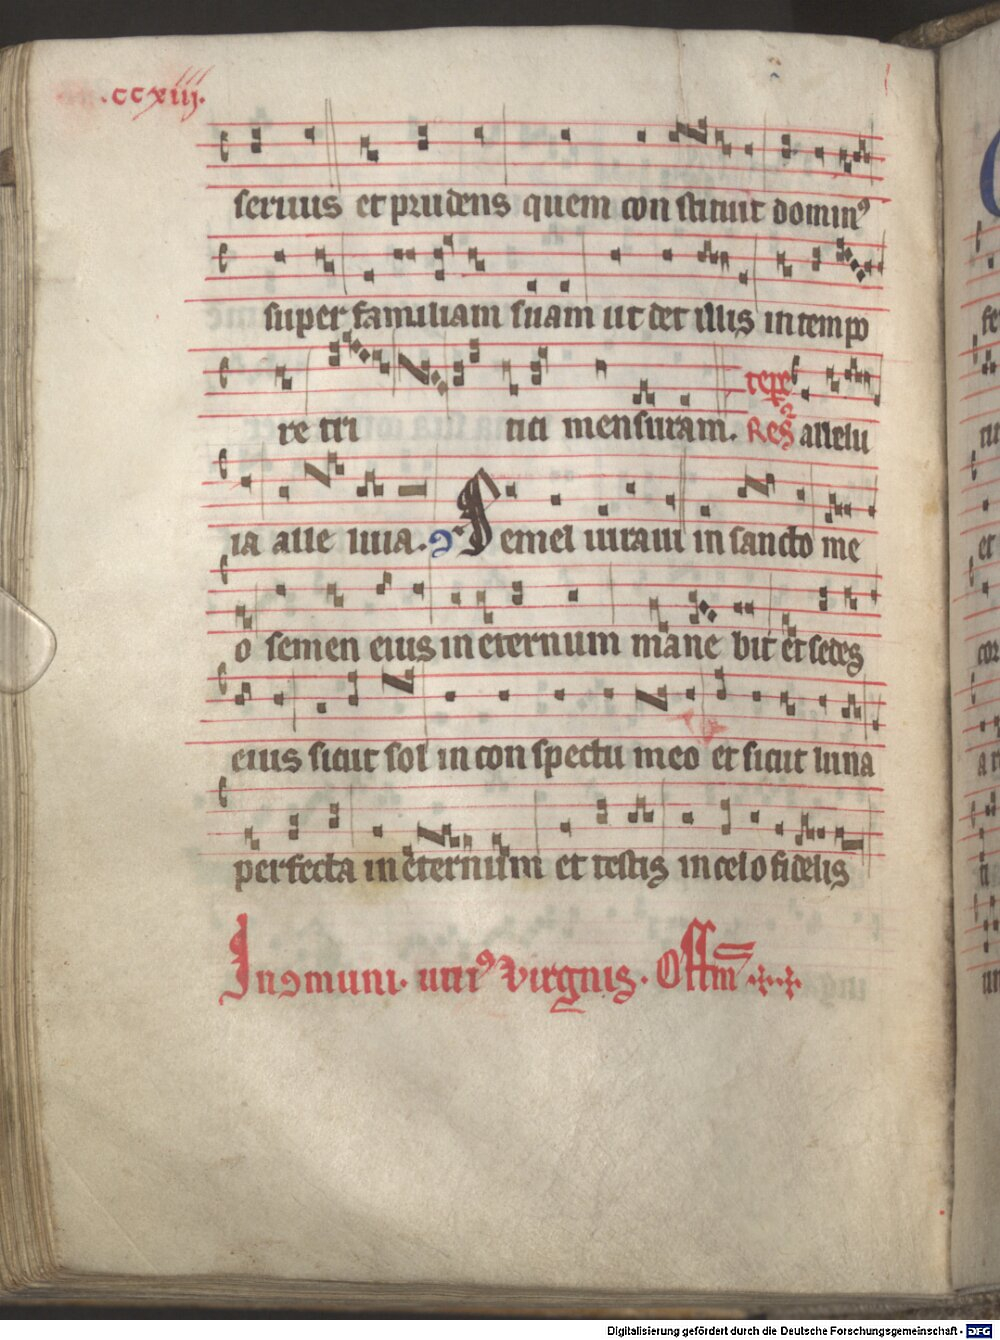 .ccxiii.
seruus et prudens quem con stituit dominꝰ
super familiam suam ut det illis in tempo
re tri tici mensuram. Resꝫ allelu
ia alle luia. Semel iuraui in sancto me
o semen eius in eternum mane bit et sedes
eius sicut sol in con spectu meo et sicut luna
perfecta in eternum et testis in celo fidelis
In ꝯmuni. uniꝰ Virginis. Offm̄
Digitalisierung gefördert durch die Deutsche Forschungsgemeinschaft - DFG